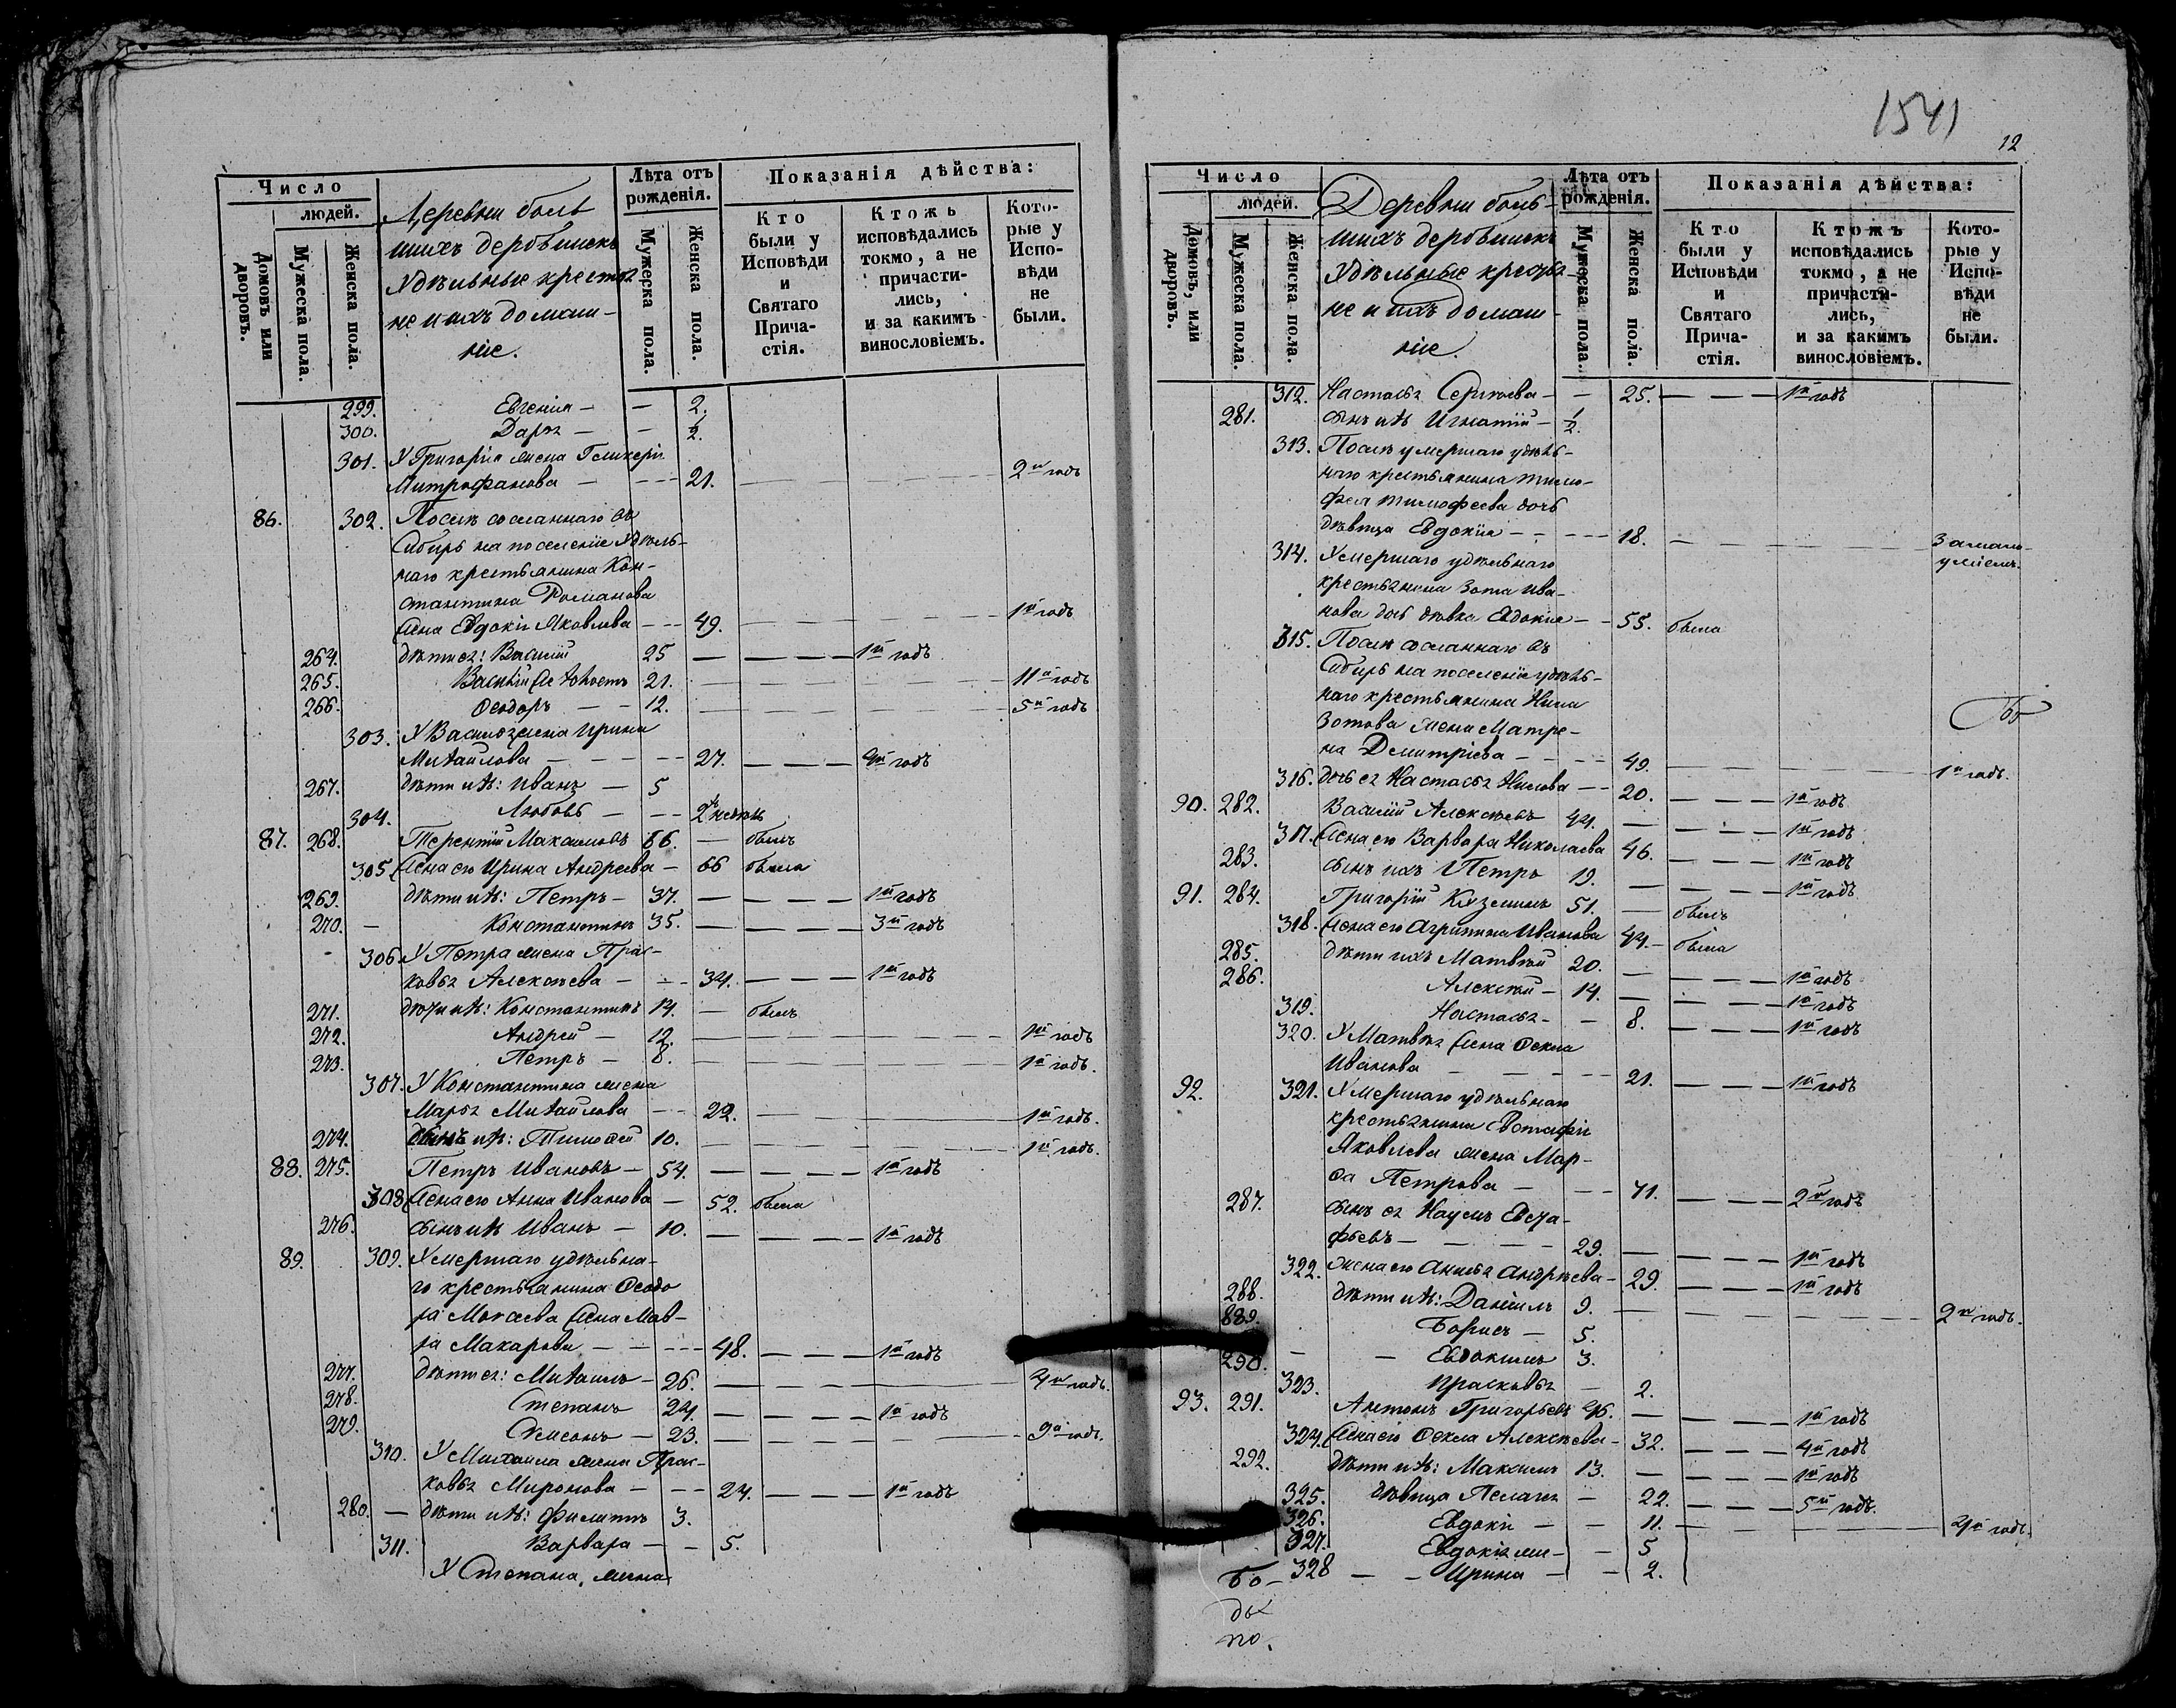 Число
людей.
Домовъ или дворовъ.
Мужеска пола.
Женска пола.
Деревни боль
шихъ дербышекъ
Удѣльные крестья
не и ихъ домаш-
ніе.
Лѣта отъ рожденія.
Мужеска пола.
Женска пола.
Показанія дѣйства:
Кто были у Исповѣди и Святаго Прича- стія.
Ктожъ исповѣдались токмо, а не причасти- лись, и за какимъ винословіемъ.
Кото- рые у Испо- вѣди не были.
299. Евгенія — — 2.
300. Дарья — — 1/2.
301. У Григорія жена Гликерія
Митрофанова — — 21. — 2й годъ
86. 302. Послѣ сосланнаго въ
Сибирь на поселеніе Удѣль-
наго крестьянина Кон-
стантина Романова
жена Евдокія Яковлева — 49. — 1й годъ
264. дѣти ея: Василій 25 — 1й годъ
265. Василій 21. — 11й годъ
266. Ѳеодоръ — 12. — 5й годъ
303. У Василья жена Ирина
Михайлова — 27. — 4й годъ
267. дѣти ихъ: Иванъ — 5
304. Любовь — — 2 недѣль
87. 268. Терентій Максимовъ 66. — былъ
305. жена его Ирина Андреева — 66 была
269. дѣти ихъ: Петръ — 37. — 1й годъ
270. — Константинъ 35. — 3й годъ
306. У Петра жена Прас-
ковья Алексѣева — 34. — 1й годъ
271. дѣти ихъ: Константинъ 14. — былъ
272. Андрей — 12. — 1й годъ
273. Петръ — 8. — 1й годъ.
307. У Константина жена
Марья Михайлова — 22. — 1й годъ.
274. сынъ ихъ: Тимоѳей 10. — 1й годъ.
88. 275. Петръ Ивановъ — 54. — 1й годъ
308. жена его Анна Иванова — 52. была
276. сынъ ихъ Иванъ — 10. — 1й годъ
89. 309. Умершаго удѣльна-
го крестьянина Ѳеодо
ра Моѵсеева жена Мав-
ра Макарова — — 48. — 1й годъ
277. дѣти ея: Михаилъ — 26. — 4й годъ.
278. Степанъ 24. — 1й годъ
279. Семенъ — 23. — 9й годъ.
310. У Михаила жена Прас-
ковья Миронова — — 24. — 1й годъ
280. — дѣти ихъ: Филиппъ 3.
311. Варвара — — 5.
У Степана, жена
1541
12
Число
людей.
Домовъ, или дворовъ.
Мужеска пола.
Женска пола.
Деревни боль-
шихъ дербышекъ
Удѣльные крестья-
не и ихъ домаш-
ніе.
Лѣта отъ рожденія.
Мужеска пола.
Женска пола.
Показанія дѣйства:
Кто были у Исповѣди и Святаго Прича- стія.
Ктожъ исповѣдались токмо, а не причасти- лись, и за какимъ винословіемъ.
Кото- рые у Испо- вѣди не были.
312. Настасья Сергѣева — — 25. — 1й годъ
281. сынъ ихъ Игнатій — 1/2.
313. Послѣ умершаго удѣль-
наго крестьянина Тимо-
фея Тимофеева дочь
дѣвица Евдокія — — 18. — За мало-
умiемъ.
314. Умершаго удѣльнаго
крестьянина Зота Ива-
нова дочь дѣвка Евдокія — 55. была
315. Послѣ сосланнаго въ
Сибирь на поселеніе удѣль-
наго крестьянина Нила
Зотова жена Матре-
на Дмитріева — — 49. — 1й годъ.
316. дочь ея Настасья Нилова — 20. — 1й годъ
90. 282. Василій Алексѣевъ 44. — 1й годъ
317. жена его Варвара Николаева 46. — 1й годъ
283. сынъ ихъ Петръ 19. — 1й годъ
91. 284. Григорій Козминъ 51. — былъ
318. жена его Агрипина Иванова 44. — была
285. дѣти ихъ Матвѣй 20. — 1й годъ
286. Алексѣй — 14. — 1й годъ
319. Настасья — — 8. — 1й годъ
320. У Матвѣя жена Ѳекла
Иванова — — 21. — 1й годъ
92. 321. Умершаго удѣльнаго
крестьянина Евстафія
Яковлева жена Мар-
ѳа Петрова — — 71. — 2й годъ
287. сынъ ея Наумъ Евста-
фьевъ — 29. — 1й годъ
322. жена его Анисья Андрѣева — 29. — 1й годъ
288. дѣти ихъ: Даніилъ 9. — 2й годъ.
889. Борисъ — 5.
290. — — Евдокимъ 3.
323. Прасковья — 2.
93. 291. Антонъ Григорьевъ 46. — 1й годъ
324. жена его Ѳекла Алексѣева — 32. — 4й годъ
292. дѣти ихъ: Максимъ 13. — 1й годъ
325. дѣвица Пелагея — 22. — 5й годъ.
326. Евдокія — — 11. — 4й годъ.
327. — — 5
328 — — Ирина — — 2.